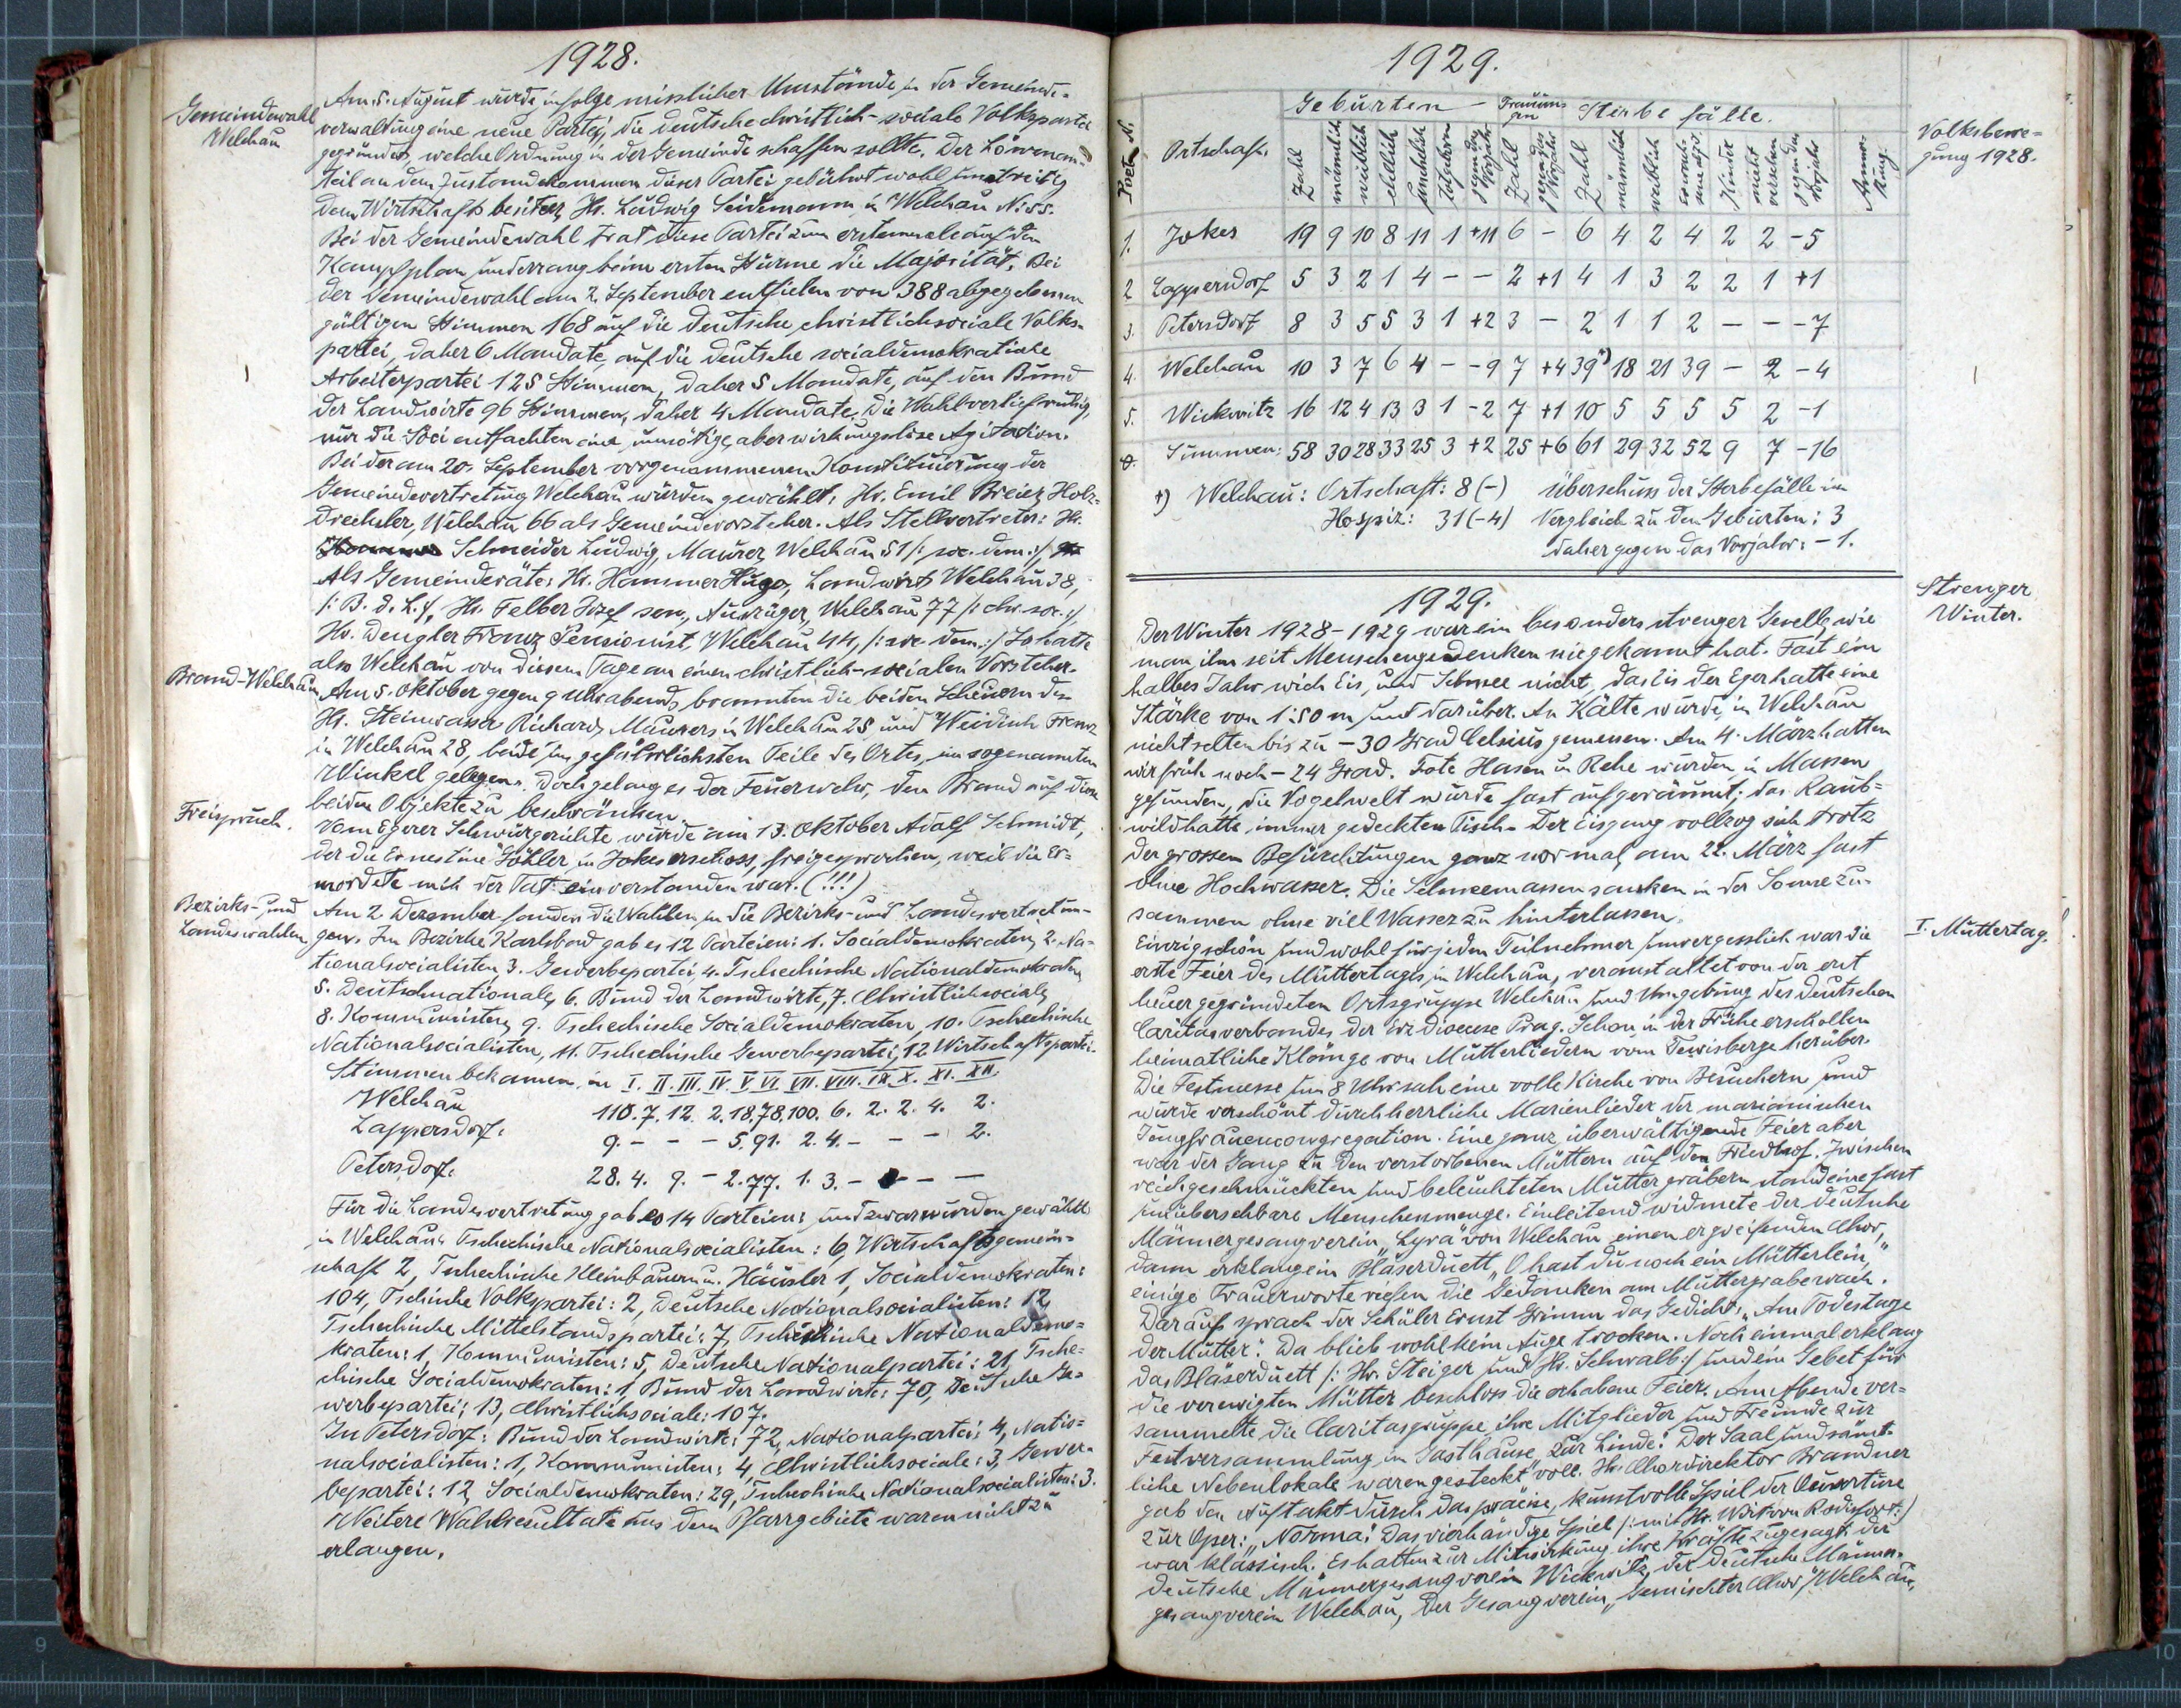 1928.
Gemeindewahl
Welchau
Am 5. August wurde infolge misslicher Umstände in der Gemeinde-
verwaltung eine neue Partei, die deutsche christlich-sociale Volkspartei
gegründet, welche Ordnung in der Gemeinde schaffen sollte. Der Löwenan-
teil an dem Zustandekommen dieser Partei gebührt wohl unstreitig
dem Wirtschaftsbesitzer Hr. Ludwig Seidemann in Welchau N: 55.
Bei der Gemeindewahl trat diese Partei zum erstenmale auf den
Kampfplan und errang beim ersten Sturme die Majorität. Bei
der Gemeindewahl am 2. September entfielen von 388 abgegebenen
gültigen Stimmen 168 auf die deutsche christlichsociale Volks-
partei, daher 6 Mandate, auf die deutsche socialdemokratische
Arbeiterpartei 125 Stimmen, daher 5 Mandate, auf den Bund
der Landwirte 96 Stimmen, daher 4 Mandate. Die Wahl verlief ruhig,
nur die Soci entfachten eine unnötige, aber wirkungslose Agitation.
Bei der am 20. September vorgenommenen Konstituierung der
Gemeindevertretung Welchau wurden gewählt: Hr. Emil Breier, Holz-
drechsler, Welchau 66 als Gemeindevorsteher. Als Stellvertreter: Hr.
Schneider Ludwig, Maurer, Welchau 51 /: soc. dem. :/
Als Gemeinderäte: Hr. Hammer Hugo, Landwirt, Welchau 38,
/: B. d. L. :/, Hr. Felber Josef sen., Auszüger, Welchau 77 /: chr. soc. :/,
Hr. Dengler Franz, Pensionist, Welchau 44, /: soc. dem. :/ So hatte
also Welchau von diesem Tage an einen christlich-socialen Vorsteher.
Brand-Welchau
Am 5. Oktober gegen 9 Uhr abends brannten die beiden Scheuern des
Hr. Steinwasser Richard, Maurers in Welchau 25 und Weidich Franz
in Welchau 28, beide im gefährlichsten Teile des Ortes, im sogenannten
Winkel gelegen. Doch gelang es der Feuerwehr, den Brand auf diese
beiden Objekte zu beschränken.
Freispruch.
Vom Egerer Schwurgerichte wurde am 13. Oktober Adolf Schmidt,
der die Ernestine Göhler in Jokes erschoss, freigesprochen, weil die Er-
mordete mit der Tat einverstanden war. (!!!)
Bezirks- und
Landeswahlen
Am 2. Dezember fanden die Wahlen in die Bezirks- und Landesvertretun-
gen. Im Bezirke Karlsbad gab es 12 Parteien: 1. Socialdemokraten, 2. Na-
tionalsocialisten, 3. Gewerbepartei, 4. Tschechische Nationaldemokraten,
5. Deutschnationale, 6. Bund der Landwirte, 7. Christlichsociale,
8. Kommunisten, 9. Tschechische Socialdemokraten, 10. Tschechische
Nationalsocialisten, 11. Tschechische Gewerbepartei, 12 Wirtschaftspartei.
Stimmen bekamen in I. II. III. IV. V. VI. VII. VIII. IX. X. XI. XII.
Welchau 110. 7. 12. 2. 18. 78. 100. 6. 2. 2. 4. 2.
Lappersdorf: 9. - - - 5. 91. 2. 4. - - - 2.
Petersdorf: 28. 4. 9. - 2. 77. 1. 3. - - - -
Für die Landesvertretung gab es 14 Parteien: und zwar wurden gewählt
in Welchau: Tschechische Nationalsocialisten: 6, Wirtschaftsgemein-
schaft 2, Tschechische Kleinbauern u. Häusler 1, Socialdemokraten:
104, Tschische Volkspartei: 2, Deutsche Nationalsocialisten: 12,
Tschechische Mittelstandspartei: 7, Tschechische Nationaldemo-
kraten: 1, Kommunisten: 5, Deutsche Nationalpartei: 21, Tsche-
chische Socialdemokraten: 1, Bund der Landwirte: 70, Deutsche Ge-
werbepartei: 13, Christlichsociale: 107.
In Petersdorf: Bund der Landwirte: 72, Nationalpartei: 4, Natio-
nalsocialisten: 1, Kommunisten: 4, Christlichsociale: 3, Gewer-
bepartei: 12, Socialdemokraten: 29, Tschechische Nationalsocialisten: 3.
Weitere Wahlresultate aus dem Pfarrgebiete waren nicht zu
erlangen.
1929.
Volksbewe-
gung 1928.
Geburten - Trauungen Sterbefälle.
Post N. Ortschaft. Zahl männlich weiblich ehelich unehelich totgeboren gegen das Vorjahr Zahl gegen das Vorjahr Zahl männlich weiblich Kinder nicht versehen gegen das Vorjahr Anmerkung.
1. Jokes 19 9 10 8 11 1 +11 6 - 6 4 2 4 2 2 -5
2 Lappersdorf 5 3 2 1 4 - - 2 +1 4 1 3 2 2 1 +1
3. Petersdorf 8 3 5 5 3 1 +2 3 - 2 1 1 2 - - -7
4. Welchau 10 3 7 6 4 - -9 7 +4 39 +) 18 21 39 - 2 -4
5. Wickwitz 16 12 4 13 3 1 -2 7 +1 10 5 5 5 5 2 -1
Summen: 58 30 28 33 25 3 +2 25 +6 61 29 32 52 9 7 -16
+) Welchau: Ortschaft: 8 (-) Überschuss der Sterbefälle im
Hospiz: 31 (-4) Vergleich zu den Geburten: 3
daher gegen das Vorjahr: -1.
1929.
Strenger
Winter.
Der Winter 1928-1929 war ein besonders strenger Geselle, wie
man ihn seit Menschengedenken nie gekannt hat. Fast ein
halbes Jahr wich Eis und Schnee nicht, das Eis der Eger hatte eine
Stärke von 1:50 m und darüber. An Kälte wurde in Welchau
nicht selten bis zu - 30 Grad Celsius gemessen. Am 4. März hatten
wir früh noch - 24 Grad. Tote Hasen u. Rehe wurden in Massen
gefunden, die Vogelwelt wurde fast aufgeräumt; das Raub-
wild hatte immer gedeckten Tisch. Der Eisgang vollzog sich trotz
der grossen Befürchtungen ganz normal am 22. März fast
ohne Hochwasser. Die Schneemassen sanken in der Sonne zu-
sammen ohne viel Wasser zu hinterlassen.
I. Muttertag.
Einzig schön und wohl für jeden Teilnehmer unvergesslich war die
erste Feier des Muttertages in Welchau, veranstaltet von der erst
heuer gegründeten Ortsgruppe Welchau und Umgebung des deutschen
Caritasverbandes der Erzdioecese Prag. Schon in der Frühe erschollen
heimatliche Klänge von Mutterliedern vom Tewisberge herüber.
Die Festmesse um 8 Uhr sah eine volle Kirche von Besuchern und
wurde verschönt durch herrliche Marienlieder der marianischen
Jungfrauencongregation. Eine ganz überwältigende Feier aber
war der Gang zu den verstorbenen Müttern auf den Friedhof. Zwischen
reichgeschmückten und beleuchteten Muttergräbern stand eine fast
unübersehbare Menschenmenge. Einleitend widmete der deutsche
Männergesangverein „Lyra" von Welchau einen ergreifenden Chor,
dann erklang ein Bläserduett „O hast du noch ein Mütterlein,"
einige Trauerworte riefen die Gedanken am Muttergrabe wach.
Darauf sprach der Schüler Ernst Grimm das Gedicht: „Am Todestage
der Mutter". Da blieb wohl kein Auge trocken. Noch einmal erklang
das Bläserduett /: Hr. Steiger und Hr. Schwalb :/ und ein Gebet für
die verewigten Mütter beschloss die erhabene Feier. Am Abende ver-
sammelte die Caritasgruppe ihre Mitglieder und Freunde zur
Festversammlung im Gasthause „zur Linde". Der Saal und sämt-
liche Nebenlokale waren gesteckt voll. Hr. Chordirektor Brandner
gab den Auftakt durch das präcise, kunstvolle Spiel der Ouvertüre
zur Oper: „Norma". Das vierhändige Spiel /: mit Hr. Wirt von Rodisfort :/
war klassisch. Es hatten zur Mitwirkung ihre Kräfte zugesagt: der
deutsche Männergesangverein Wickwitz, der deutsche Männer-
gesangverein Welchau, der Gesangverein „Gemischter Chor" Welchau,
9
10